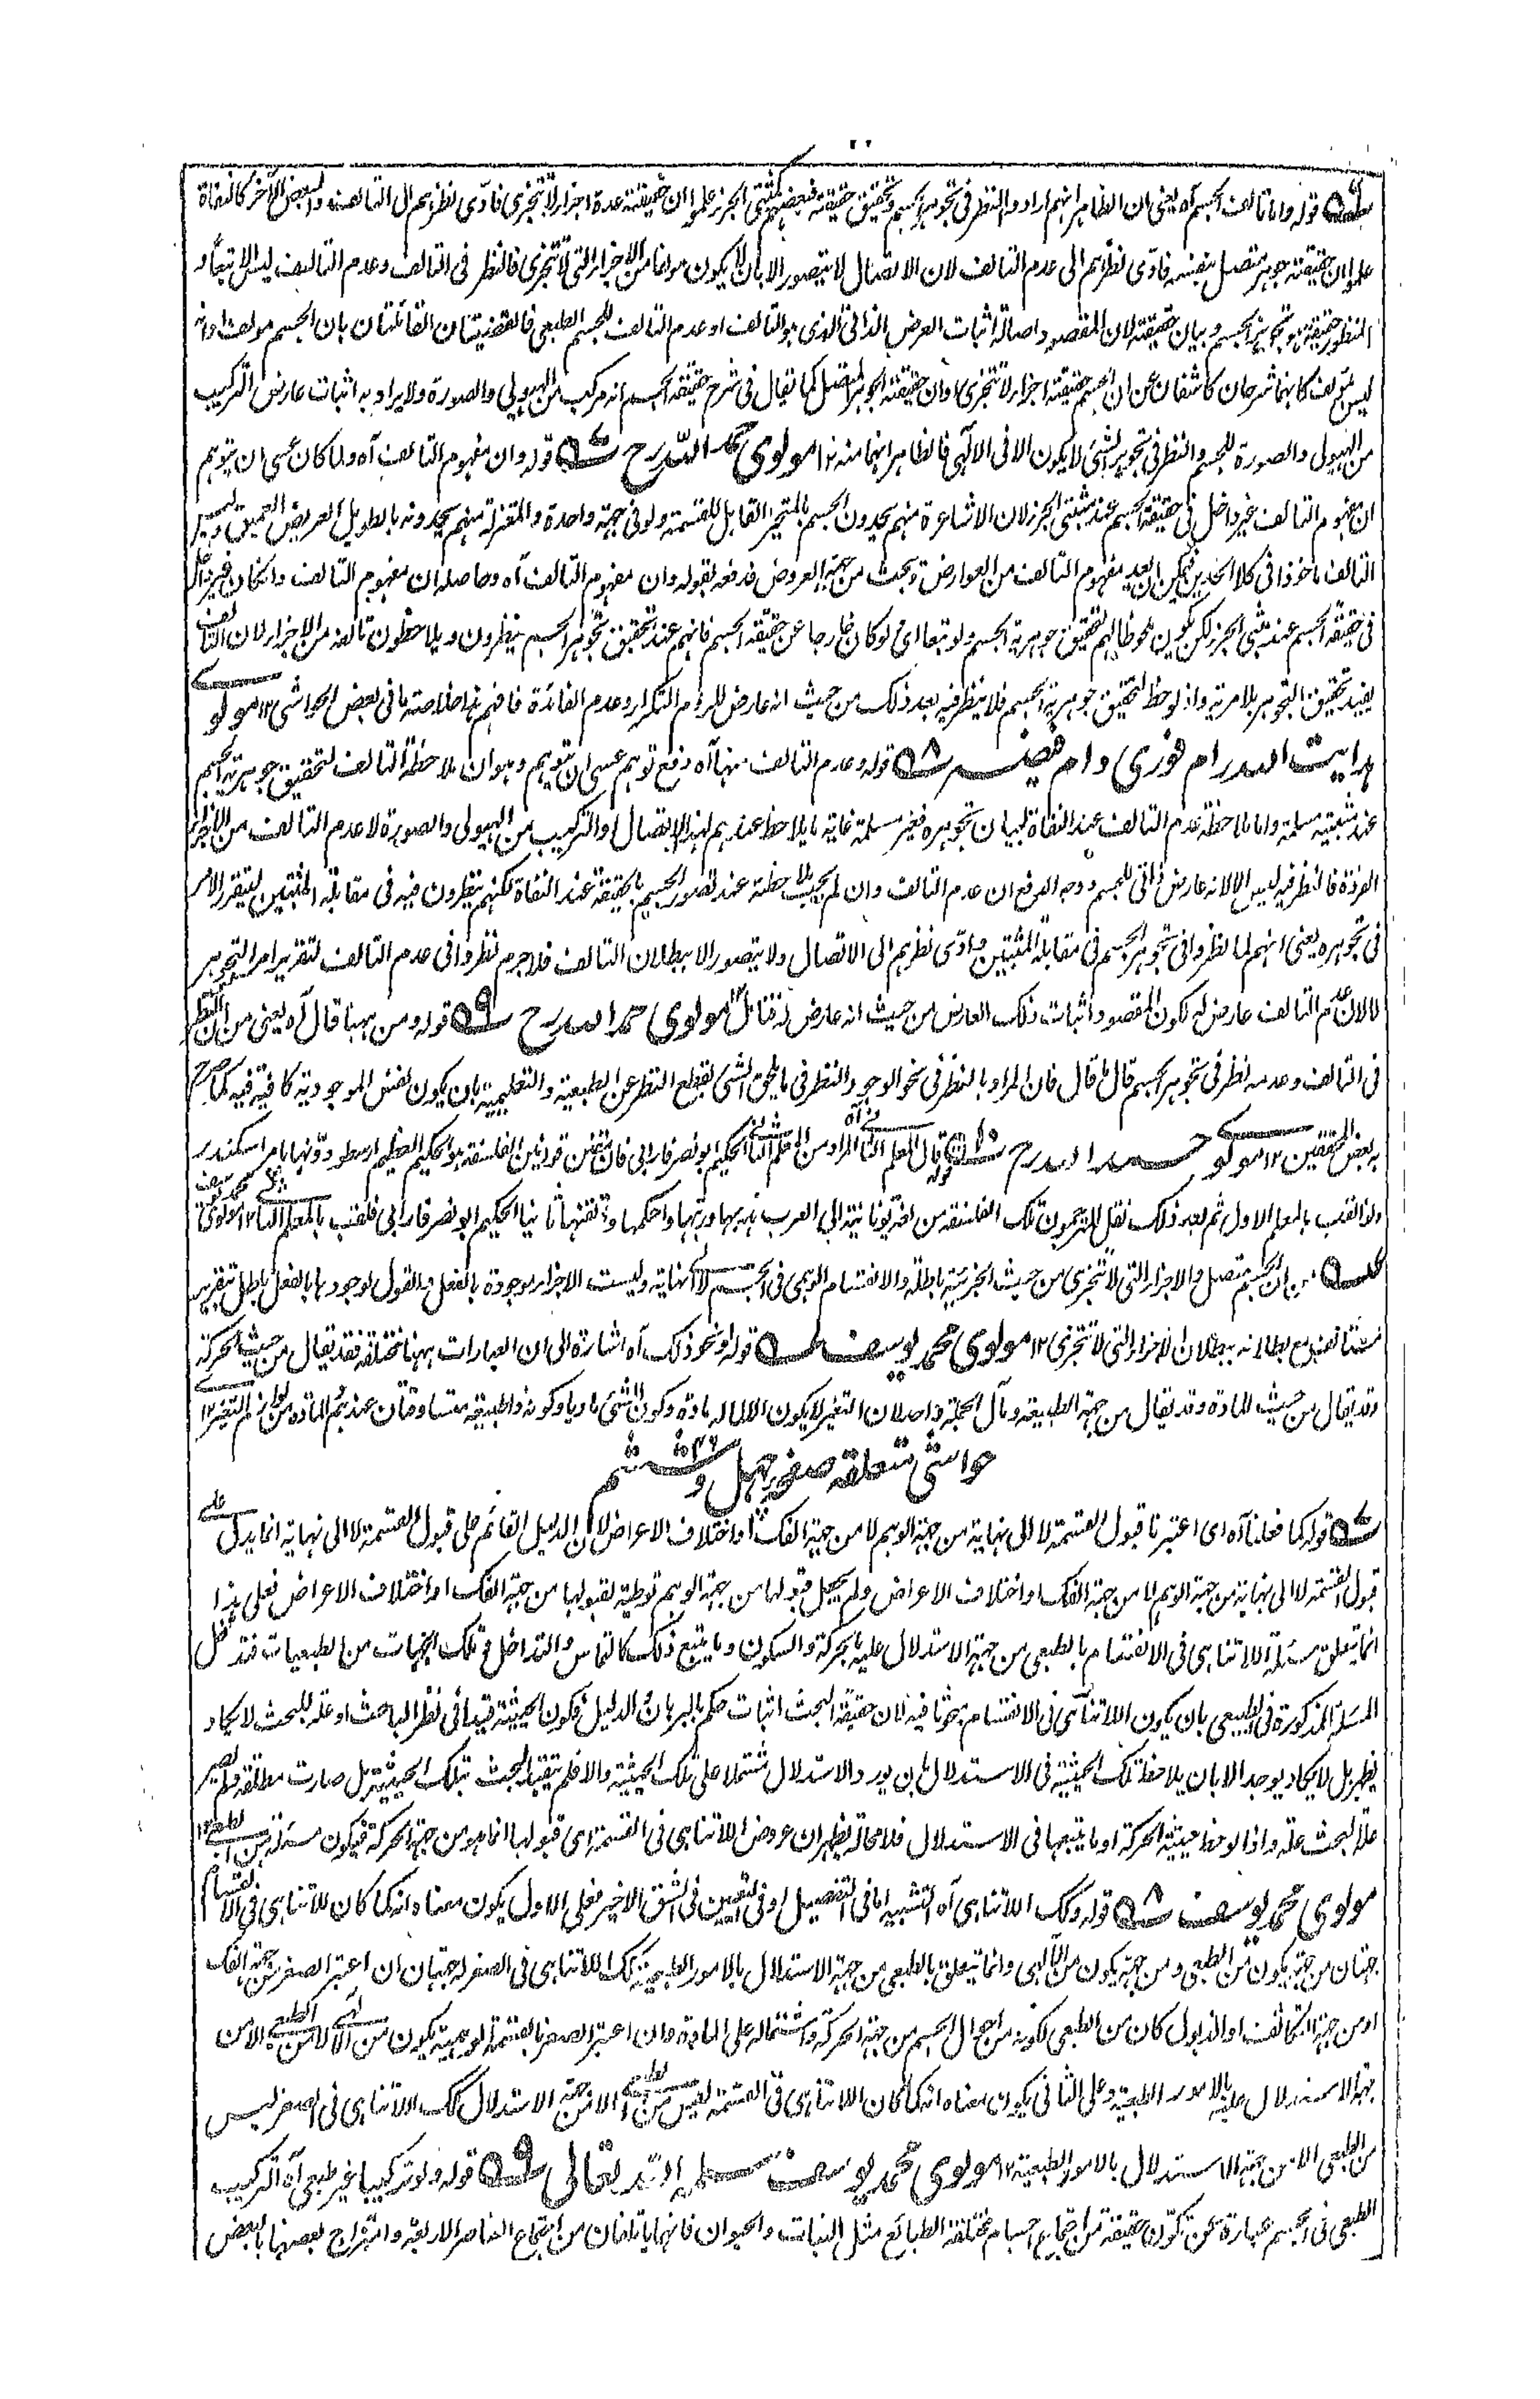 قوله واما تالف الجسم آه يعنى ان الظاهر انهم ارادوا النظر فى تجوهر الجسم وتحقيق حقيقته فبعضهم كمثبتى الجزء علموا ان حقيقته عدة اجزاء لا تتجزى فادى نظرهم الى التالف والبعض الآخر كالنفاة
علموا ان حقيقته جوهر متصل بنفسه فادى نظرهم الى عدم التالف لان الاتصال لا يتصور الا بان لا يكون مولفا من الاجزاء التى لا تتجزى فالنظر فى التالف وعدم التالف ليس الا تبعا و
المنظور حقيقة هو تجوهر الجسم وبيان حقيقته لان المقصود اصالة اثبات العرض الذاتى الذى هو التالف او عدم التالف للجسم الطبعى فالقضيتان القائلتان بان الجسم مولف او انه
ليس بمولف كانهما شرحان كاشفان عن ان الجسم حقيقته اجزاء لا تتجزى او ان حقيقته الجوهر المتصل كما يقال فى شرح حقيقة الجسم انه مركب من الهيولى والصورة ولا يراد به اثبات عارض التركيب
من الهيولى والصورة للجسم والنظر فى تجوهر الشئ لا يكون الا فى الالهى فالظاهر انهما منه ١٢ مولوى حمد الله رح قوله وان مفهوم التالف آه ولما كان عسى ان يتوهم
ان مفهوم التالف غير داخل فى حقيقة الجسم عند مثبتى الجزء لان الاشاعرة منهم يحدون الجسم بالمتحيز القابل للقسمة ولو فى جهة واحدة والمعتزلة منهم يحدونه بالطويل العريض العميق وليس
التالف ماخوذا فى كلا الحدين فيمكن ان يعد مفهوم التالف من العوارض ويبحث من جهة العروض فدفعه بقوله وان مفهوم التالف آه وحاصله ان مفهوم التالف وان كان غير داخل
فى حقيقة الجسم عند مثبتى الجزء لكن يكون ملحوظا لهم لتحقيق جوهرية الجسم ولو تبعا اى لو كان خارجا عن حقيقة الجسم فانهم عند تحقيق تجوهر الجسم ينظرون ويلاحظون تالفه من الاجزاء لان التالف
يفيد تحقيق التجوهر بلا مرية واذا لوحظ لتحقيق جوهرية الجسم فلا ينظر فيه بعد ذلك من حيث انه عارض للزوم التكرار وعدم الفائدة فافهم هذا خلاصة ما فى بعض الحواشى ١٢ مولوى
هدايت الله رامفورى دام فيضه قوله وعدم التالف منها آه دفع توهم عسى ان يتوهم وهو ان ملاحظة التالف لتحقيق جوهرية الجسم
عند مثبتيه مسلمة واما ملاحظة عدم التالف عند النفاة لبيان تجوهره فغير مسلمة غاية ما يلاحظ عندهم لهذا الاتصال او التركيب من الهيولى والصورة لا عدم التالف من الاجزاء
الفردة فالنظر فيه ليس الا لانه عارض ذاتى للجسم ووجه الدفع ان عدم التالف وان لم يجب ملاحظته عند تصور الجسم بالحقيقة عند النفاة لكنهم ينظرون فيه فى مقابلة المثبتين ليتقرر الامر
فى تجوهره يعنى انهم لما نظروا فى تجوهر الجسم فى مقابلة المثبتين وادى نظرهم الى الاتصال ولا يتصور الا ببطلان التالف فلا جرم نظروا فى عدم التالف لتقرير امر التجوهر
لا لان عدم التالف عارض له لكون المقصود اثبات ذلك العارض من حيث انه عارض له فتامل ١٢ مولوى حمد الله رح قوله ومن ههنا قال آه يعنى من ان النظر
فى التالف وعدمه نظر فى تجوهر الجسم قال ما قال فان المراد بالنظر فى نحو الوجود النظر فى ما يلحق الشئ بقطع النظر عن الطبعية والتعليمية بان يكون نفس الموجودية كافية فيه كما صرح
به بعض المحققين ١٢ مولوى حمد الله رح قوله قال المعلم الثانى آه المراد من المعلم الثانى الحكيم ابو نصر فارابى فان مقنن قوانين الفلسفة هو الحكيم العظيم ارسطو دونها بامر اسكندر
ولذا لقب بالمعلم الاول ثم بعد ذلك نقل المترجمون تلك الفلسفة من لغة يونانية الى العرب هذبها ورتبها واحكمها واتقنها ثانيا الحكيم ابو نصر فارابى فلقب بالمعلم الثانى ١٢ مولوى محمد يوسف
من ان الجسم متصل والاجزاء التى لا تتجزى من حيث الجزئية باطلة والانقسام الوهمى فى الجسم لا الى نهاية وليست الاجزاء موجودة بالفعل والقول بوجودها بالفعل باطل بتقرير
مستانف مع بطلانه ببطلان الاجزاء التى لا تتجزى ١٢ مولوى محمد يوسف قوله ونحو ذلك آه اشارة الى ان العبارات ههنا مختلفة فقد يقال من حيث الحركة
وقد يقال من حيث المادة وقد يقال من جهة الطبيعة ومآل الجملة واحد لان التغير لا يكون الا لما له مادة وكون الشئ ماديا وكونه ذا طبيعة متساوقان عندهم المادة من لوازم التغير ١٢
حواشى متعلقه صفحه چهل و ششم
قوله كما فعلنا آه اى اعتبرنا قبول القسمة لا الى نهاية من جهة الوهم لا من جهة الفك او اختلاف الاعراض لان الدليل القائم على قبول القسمة لا الى نهاية انما يدل على
قبول القسمة لا الى نهاية من جهة الوهم لا من جهة الفك او اختلاف الاعراض ولم يجعل قبولها من جهة الوهم توطية لقبولها من جهة الفك او اختلاف الاعراض فعلى هذا
انما يتعلق مسئلة اللاتناهى فى الانقسام بالطبعى من جهة الاستدلال عليه بالحركة والسكون وما يتبع ذلك كالتماس والتداخل وتلك الجهات من الطبعيات فتدخل
المسئلة المذكورة فى الطبيعى بان يكون اللاتناهى فى الانقسام مبحوثا فيه لان حقيقة البحث اثبات حكم بالبرهان والدليل فكون الحيثية قيدا فى نظر الباحث او علة للبحث لا يكاد
يظهر بل لا يكاد يوجد الا بان يلاحظ تلك الحيثية فى الاستدلال بان يورد الاستدلال مشتملا على تلك الحيثية والا فلم يتقيد البحث بتلك الحيثية بل صارت مطلقة ولم يصير
علة البحث علة واذا لوحظ حيثية الحركة او ما يتبعها فى الاستدلال فلا محالة يظهر ان عروض اللاتناهى فى القسمة اى قبولها انما هو من جهة الحركة فيكون مسئلة من الطبعى ١٢
مولوى محمد يوسف قوله وكك اللاتناهى آه التشبيه اما فى التفصيل او فى التعيين فى الشق الاخير فعلى الاول يكون معناه انه كما كان للاتناهى فى الانقسام
جهتان من جهة يكون من الطبعى ومن جهة يكون من الالهى وانما يتعلق بالطبعى من جهة الاستدلال بالامور الطبعية كك اللاتناهى فى الصغر له جهتان ان اعتبر الصغر من جهة الفك
او من جهة التكاثف او الذبول كان من الطبعى لكونه من احوال الجسم من جهة الحركة واشتماله على المادة وان اعتبر الصغر بالقسمة الوهمية يكون من الالهى لا من الطبعى الا من
جهة الاستدلال عليه بالامور الطبعية وعلى الثانى يكون معناه انه كما كان اللاتناهى فى القسمة ليس من الطبعى الا من جهة الاستدلال كك اللاتناهى فى الصغر ليس
من الطبعى الا من جهة الاستدلال بالامور الطبعية ١٢ مولوى محمد يوسف سلمه الله تعالى قوله ولو تركيبا غير طبعى آه التركيب
الطبعى فى الجسم عبارة عن تكون حقيقة من اجتماع اجسام مختلفة الطبائع مثل النبات والحيوان فانهما ياتلفان من اجتماع العناصر الاربعة وامتزاج بعضها بالبعض